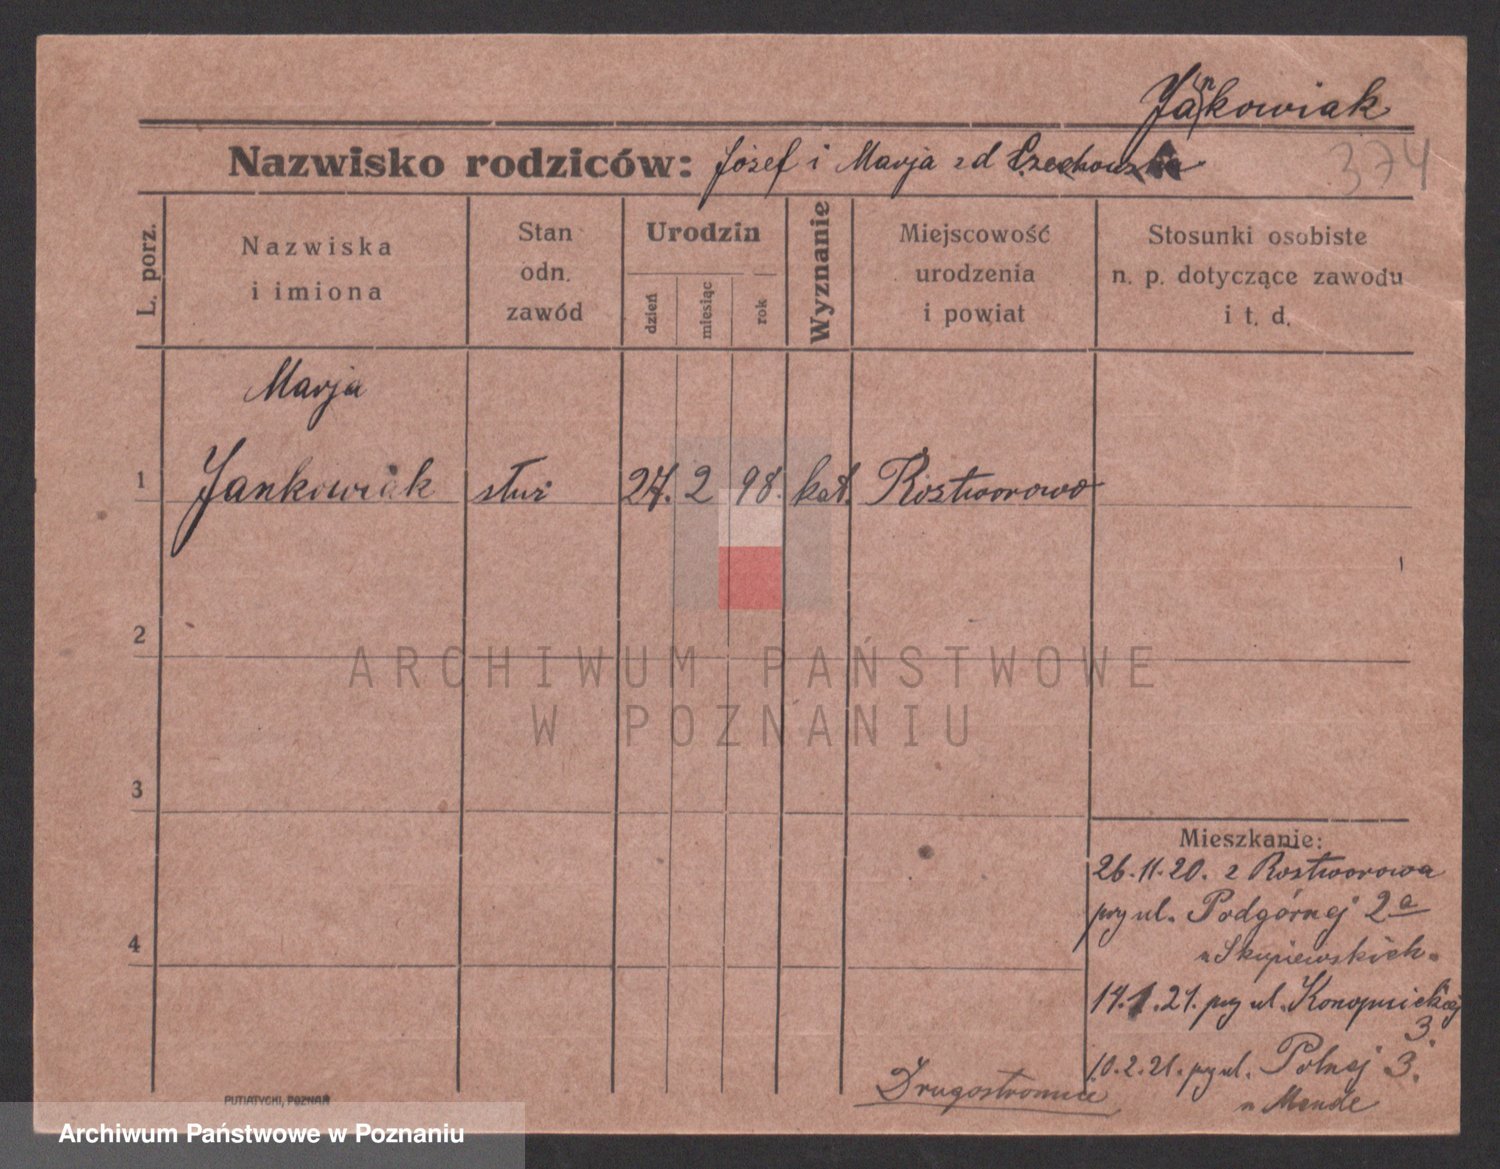 Jankowiak
Nazwisko rodziców: Józef i Marja zd Czechowska
374
L. porz.
Nazwiska
i imiona
Stan
odn.
zawód
Urodzin
dzień
miesiąc
rok
Wyznanie
Miejscowość
urodzenia
i powiat
Stosunki osobiste
n. p. dotyczące zawodu
i t. d.
Marja
1 Jankowiak służ 27. 2 98. kat. Rostworowo
2
ARCHIWUM PAŃSTWOWE
W POZNANIU
3
Mieszkanie:
26.11.20. z Rostworowa
przy ul. Podgórnej 2a
u Skupiewskich.
4
14.1.21. przy ul. Konopnickiej
3.
10.2.21. przy ul. Polnej 3.
u Mende
Drugostronnie
PUTIATYCKI, POZNAŃ
Archiwum Państwowe w Poznaniu